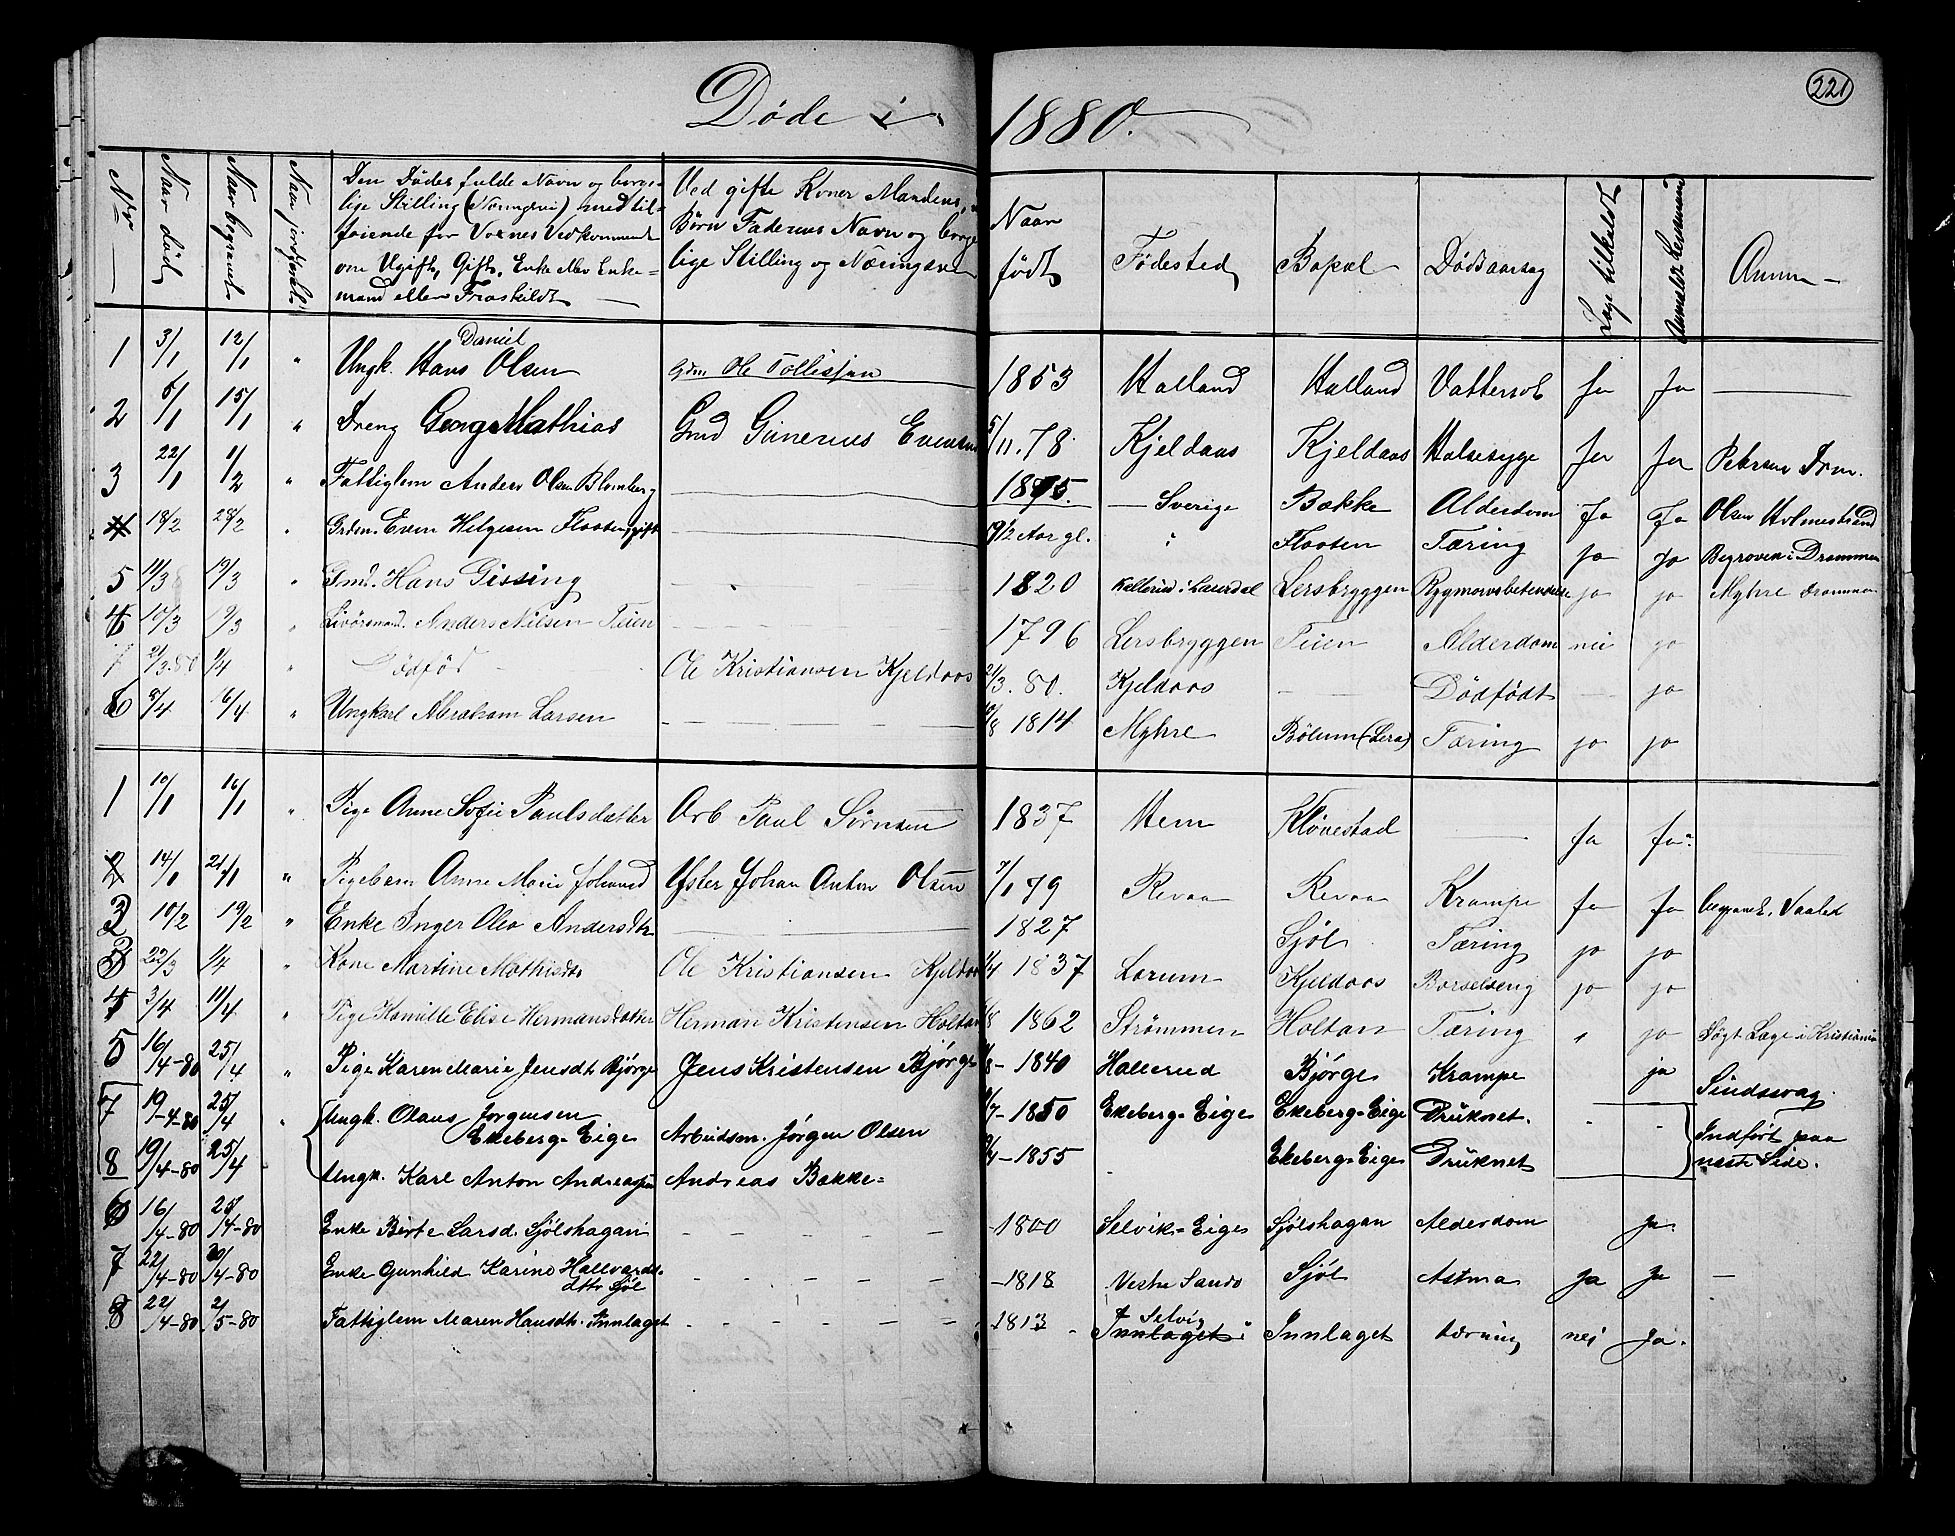 221
Døde i 1880.
Nr
Naar død
Naar begravet
Naar jordfæstet
Den Dødes fulde Navn og borger-
lige Stilling (Næringsvei) med til-
føiende for Voxnes Vedkommende
om Ugift, Gift, Enke eller Enke-
mand eller Fraskildt
Ved gifte Koner Mandens,
Børn Faderens Navn og borger
lige Stilling og Næringsvei
Naar
født
Fødested
Bopæl
Dødsaarsag
Læge tilkaldt
Anmeldt
Anm
1 3/1 12/1 " Ungk. Hans Daniel Olsen Gdm Ole Tollefsen 1853 Halland Halland Vattersot ja Ja —
2 6/1 15/1 " Dreng Georg Mathias Gmd Gunerius Evensen 5/11.78. Kjeldaas Kjeldaas Halsesyge Ja Ja Petersen Drm.
3 22/1 1/2 " Fattiglem Anders Olsen Blomberg — Sverige Bakke Alderdom Ja Ja Olsen Holmestrand
4 18/2 28/2 " Even Helgesen Flaaten, gift 79 1/2 Aar gl. " Flaaten Tæring ja Jo Begraven i Drammen
5 19/3 " Gmd. Hans Gissing 1820 Lersbryggen jo jo Myhre Drammen
17/3 19/3 " Anders Nilsen Teien 1796 Lersbryggen Teien Alderdom nei jo
21/3 80 1/4 " Dødfød Ole Kristiansen Kjeldaas 21/3.80. Kjeldaas — Dødfødt — jo
6 8/4 16/4 " Ungkarl Abraham Larsen — 1814 Myhre Bølum (Lera) Tæring jo jo
1 10/1 16/1 " Pige Anne Sofie Paulsdatter Arb Paul Sørnsen 1837 Hem Kløvestad — ja ja
2 14/1 21/1 " Pigebarn Anne Marie Johansd Johan Anton Olsen 7/1 79 Revaa Revaa Krampe ja ja begravet. Vaaled
3 10/2 19/2 " Enke Inger Olea Andersdtr — 1827 Sjøl Tæring jo jo
3 22/3 1/4 " Kone Martine Mathisdtr Ole Kristiansen Kjeldaas 1837 Lorum Kjeldaas Barselseng jo jo
4 3/4 11/4 " Pige Kamille Elise Hermansdatter Herman Kristensen Holtan 1862 Strømmen Holtan Tæring " jo Søgt Læge i Kristiania
5 16/4-80 25/4 " Pige Karen Marie Jensdt Bjørge Jens Kristensen Bjørge 1840 Hallerud Bjørge Krampe ja Sindssvag.
7 19-4-80 25/4 " Ungk. Olaus Jørgensen
Ekeberg-Eige Arbeidsm. Jørgen Olsen 1850 Ekeberg-Eige Ekeberg-Eige Druknet. - - Indført paa
8 19/4-80 25/4 Ungk. Karl Anton Andreassen Andreas Bakke- 1855 Ekeberg-Eige Druknet næste Side.
6 16/4-80 25/4-80 Enke Birte Larsd. Sjølshagan - - - - -1800 Selvik-Eige Sjølshagan Alderdom Ja
7 22/4-80 30/4-80 Enke Gunhild Karine Hallvards-
dttr Sjøl - - - - -1818 Vestre Sando Sjøl Astma Ja Ja —
8 22/4-80 2/5-80 Fattiglem Maren Hansdt. Innlaget - - - - 1813 Innlaget i Selvig Innlaget tæring nei Ja.